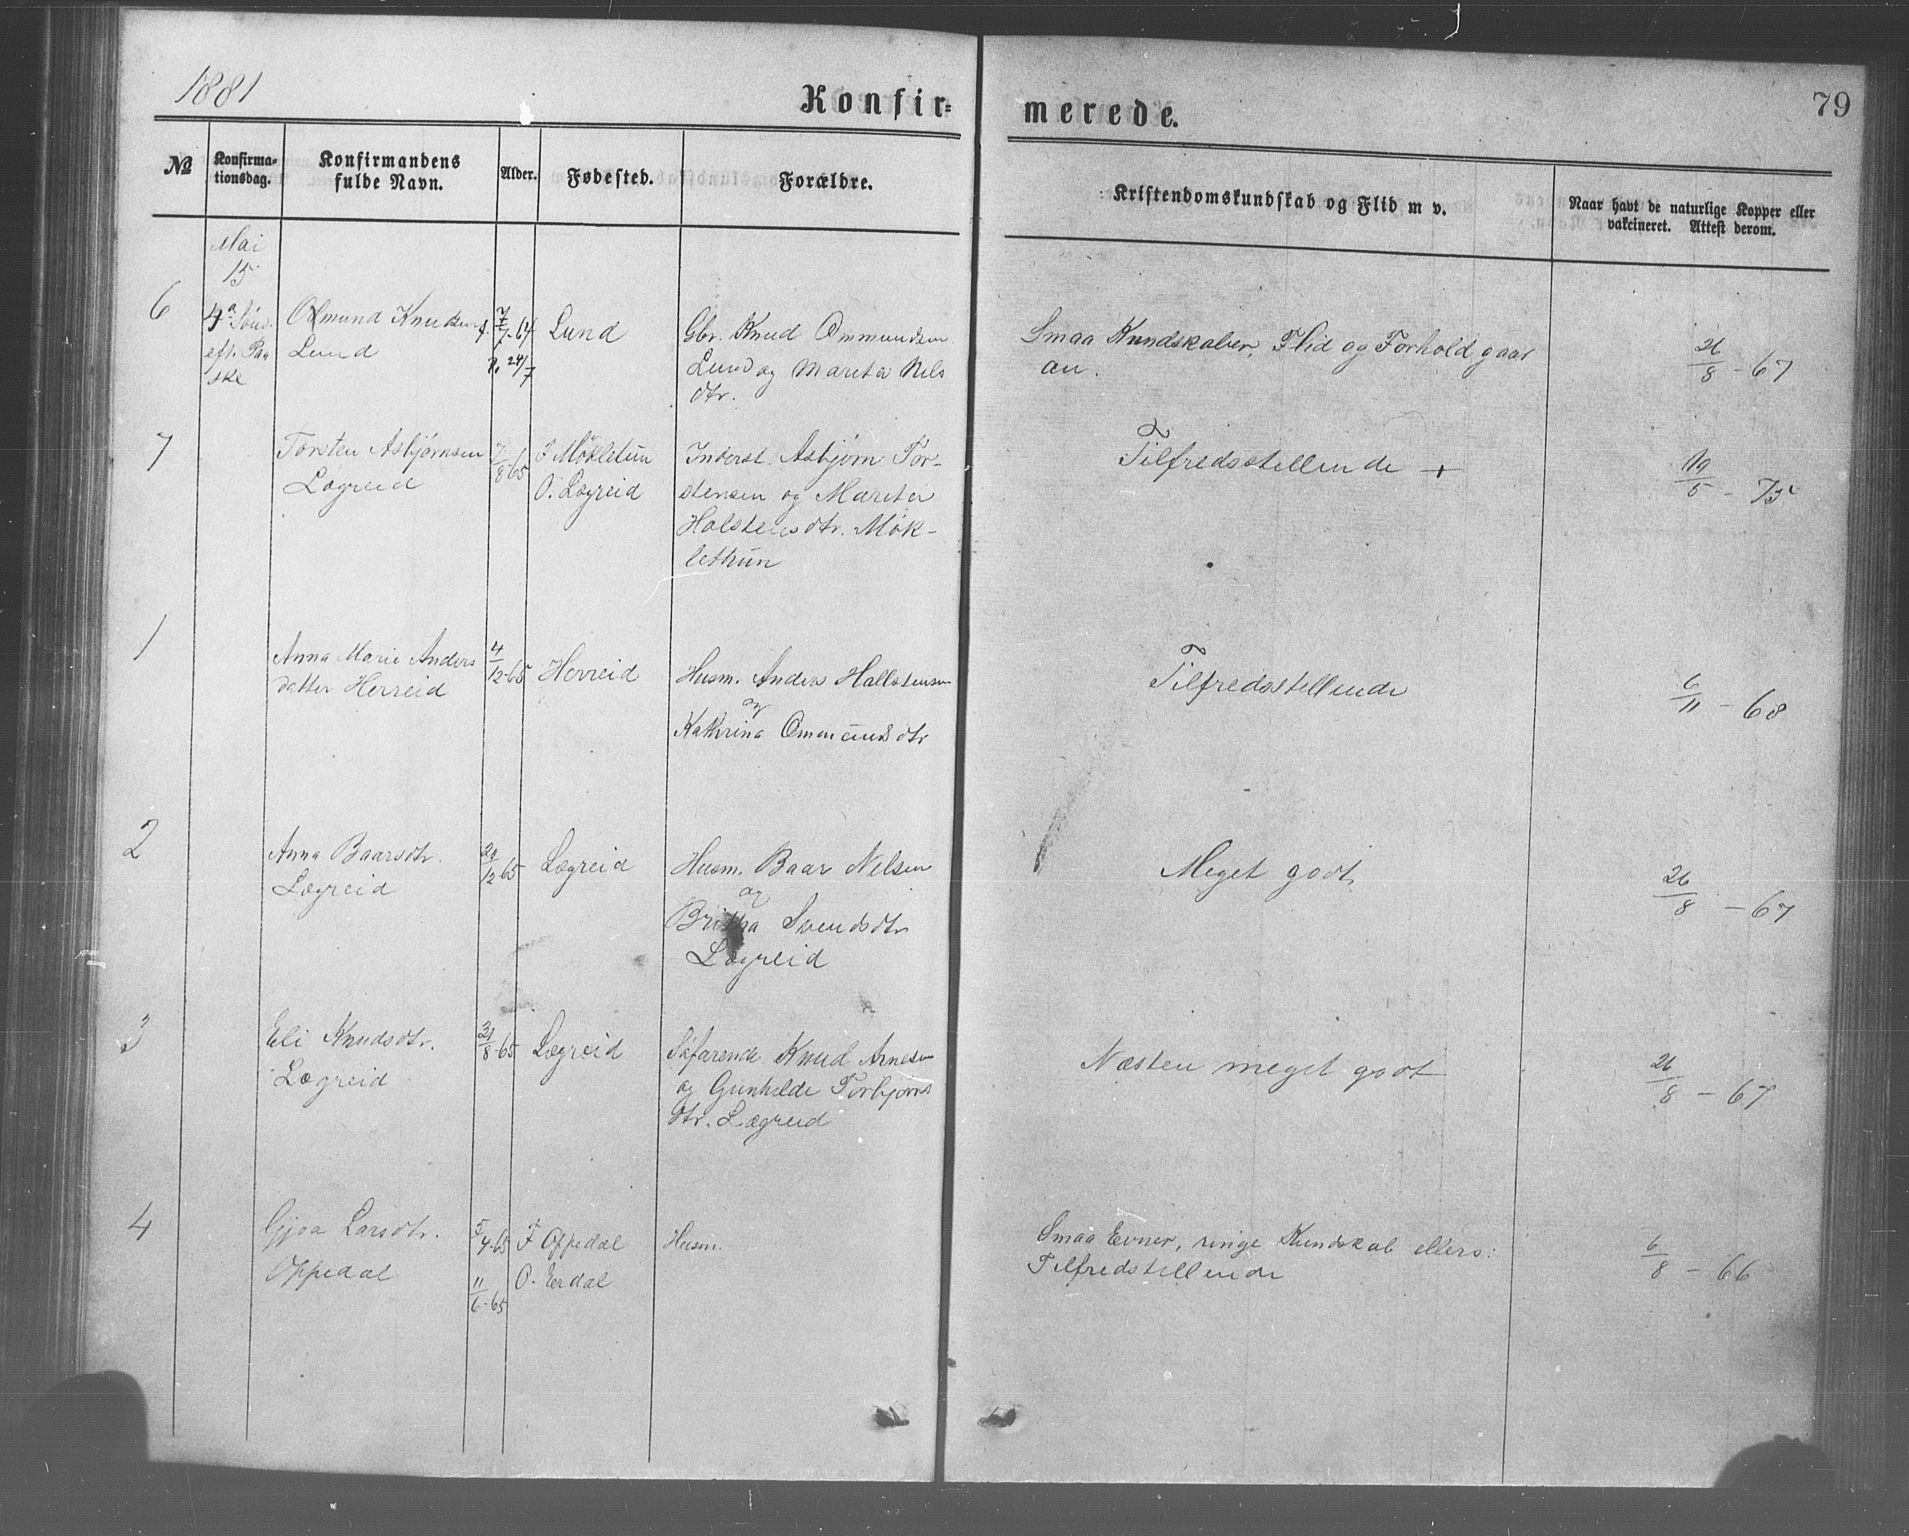 1881
Konfir=
merede.
79
№
Konfirma-
tionsdag.
Konfirmandens
fulde Navn.
Alder.
Fødested.
Forældre.
Kristendomskundskab og Flid m v.
Naar havt de naturlige Kopper eller
vakcineret. Attest derom.
Mai
15
4a Sønd.
eft. Paa
ske
6
Ommund Knudsen
Lund
f. 7/7-64
24/7
Lund
Gbr. Knud Ommundsen
Lund og Mareta Nels
dtr.
Smaa Kundskaber, Flid og Forhold gaar
an.
26/8 - 67
7
Torsten Asbjørnsen
Lægreid
7/8 65
F Mökletun
O. Lægreid
Inderst. Asbjørn Tor-
stensen og Mareta
Holstensdtr. Møk-
lethun
Tilfredsstellende +
19/5 - 75
1
Anna Marie Anders
datter Herreid
4/12-65
Herreid
Husm. Anders Hallstensen
og
Kathrina Omundsdtr
Tilfredsstellende
6/11 - 68
2
Anna Baarsdtr.
Lægreid
29/12 65
Lægreid
Husm. Baar Nelsen
og
Britha Svendsdtr
Lægreid
Meget godt
26/8 - 67
3
Eli Knudsdtr.
Lægreid
31/8-65
Lægreid
Søfarende Knud Arnesen
og Gunhilde Torbjørns
dtr. Lægreid
Næsten meget godt
26/8 - 67
4
Gjoa Larsdtr.
Oppedal
5/4-65
11/6-65
F Oppedal
O. Erdal
Husm.
Smaa Evner, ringe Kundskab ellers:
Tilfredstellende
6/8 - 66